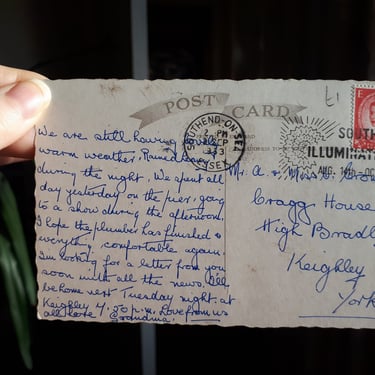 POST CARD
We are still having lovely
warm weather. Rained
during the night. We spent all
day yesterday on the pier, going
to a show during the afternoon.
I hope the plumber has finished &
everything comfortable again.
I'm looking for a letter from you
soon with all the news. I'll
be home next Tuesday night, at
Keighley 4.50 p.m. Love from us
all here Grandma.
SOUTHEND-ON-SEA
2 - PM
SEP
ESSEX
SOUTH
ILLUMINAT
AUG. OC
Mr. A & Miss
Cragg House
High Bradl
Keighley
York